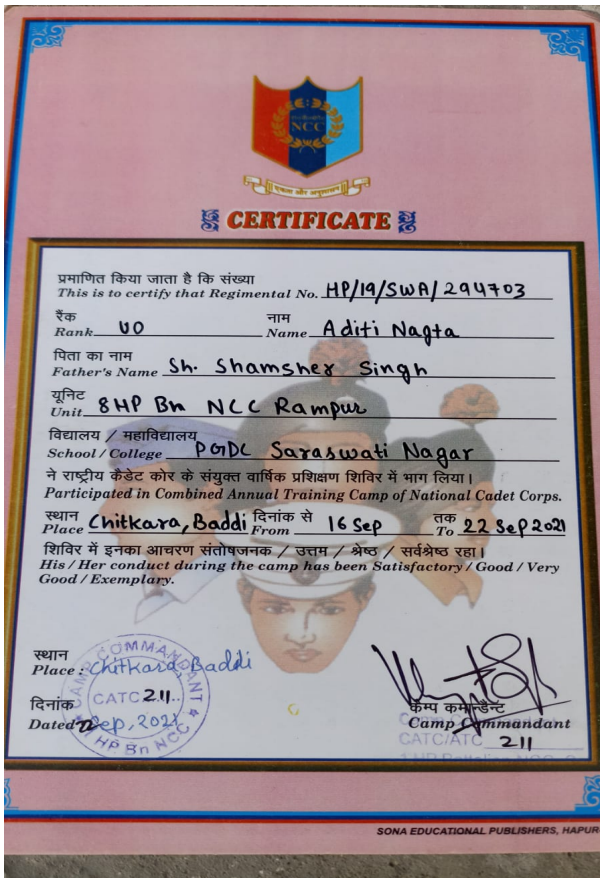 NCC
एकता और अनुशासन
CERTIFICATE
प्रमाणित किया जाता है कि संख्या
This is to certify that Regimental No. HP/19/SWA/294703
रैंक नाम
Rank UO Name Aditi Nagta
पिता का नाम
Father's Name Sh. Shamsher Singh
यूनिट
Unit 8HP Bn NCC Rampur
विद्यालय / महाविद्यालय
School / College PGDC Saraswati Nagar
ने राष्ट्रीय कैडेट कोर के संयुक्त वार्षिक प्रशिक्षण शिविर में भाग लिया।
Participated in Combined Annual Training Camp of National Cadet Corps.
स्थान दिनांक से तक
Place Chitkara, Baddi From 16 Sep To 22 Sep 2021
शिविर में इनका आचरण संतोषजनक / उत्तम / श्रेष्ठ / सर्वश्रेष्ठ रहा।
His / Her conduct during the camp has been Satisfactory / Good / Very
Good / Exemplary.
स्थान
Place : Chitkara, Baddi
दिनांक
Dated 22 Sep, 2021
CAMP COMMANDANT
CATC 211
HP Bn NCC
कैम्प कमान्डैन्ट
Camp Commandant
CATC/ATC 211
SONA EDUCATIONAL PUBLISHERS, HAPUR